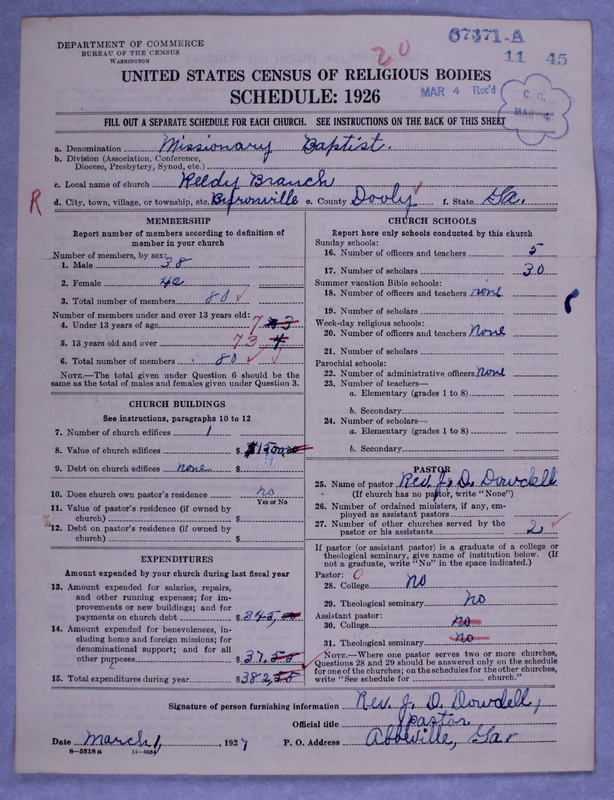 DEPARTMENT OF COMMERCE
BUREAU OF THE CENSUS
WASHINGTON
20
67371-A
11 45
UNITED STATES CENSUS OF RELIGIOUS BODIES
SCHEDULE: 1926
MAR 4 Rec'd
C. C.
MAR 4
FILL OUT A SEPARATE SCHEDULE FOR EACH CHURCH. SEE INSTRUCTIONS ON THE BACK OF THIS SHEET
a. Denomination Missionary Baptist.
b. Division (Association, Conference,
Diocese, Presbytery, Synod, etc.)
c. Local name of church Reedy Branch
R
d. City, town, village, or township, etc. Byromville e. County Dooly f. State Ga.
MEMBERSHIP
Report number of members according to definition of
member in your church
Number of members, by sex:
1. Male 38
2. Female 42
3. Total number of members 80
Number of members under and over 13 years old:
4. Under 13 years of age 7 3
5. 13 years old and over 73 4
6. Total number of members 80
NOTE.—The total given under Question 6 should be the
same as the total of males and females given under Question 3.
CHURCH BUILDINGS
See instructions, paragraphs 10 to 12
7. Number of church edifices 1
8. Value of church edifices $1500.00
9. Debt on church edifices none $
10. Does church own pastor's residence no
Yes or No
11. Value of pastor's residence (if owned by
church) $
12. Debt on pastor's residence (if owned by
church) $
EXPENDITURES
Amount expended by your church during last fiscal year
13. Amount expended for salaries, repairs,
and other running expenses; for im-
provements or new buildings; and for
payments on church debt $345,00
14. Amount expended for benevolences, in-
cluding home and foreign missions; for
denominational support; and for all
other purposes $37.55
15. Total expenditures during year $382,55
CHURCH SCHOOLS
Report here only schools conducted by this church
Sunday schools:
16. Number of officers and teachers 5
17. Number of scholars 30
Summer vacation Bible schools:
18. Number of officers and teachers none
19. Number of scholars
Week-day religious schools:
20. Number of officers and teachers None
21. Number of scholars
Parochial schools:
22. Number of administrative officers None
23. Number of teachers—
a. Elementary (grades 1 to 8)
b. Secondary
24. Number of scholars—
a. Elementary (grades 1 to 8)
b. Secondary
PASTOR
25. Name of pastor Rev. J. D. Dowdell
(If church has no pastor, write "None")
26. Number of ordained ministers, if any, em-
ployed as assistant pastors
27. Number of other churches served by the
pastor or his assistants 2
If pastor (or assistant pastor) is a graduate of a college or
theological seminary, give name of institution below. (If
not a graduate, write "No" in the space indicated.)
Pastor: 0
28. College no
29. Theological seminary no
Assistant pastor:
30. College no
31. Theological seminary no
NOTE.—Where one pastor serves two or more churches,
Questions 28 and 29 should be answered only on the schedule
for one of the churches; on the schedules for the other churches,
write "See schedule for church."
Signature of person furnishing information Rev. J. D. Dowdell,
Official title pastor
Date March 1, 1927 P. O. Address Abbeville, Ga.
8—5518 a